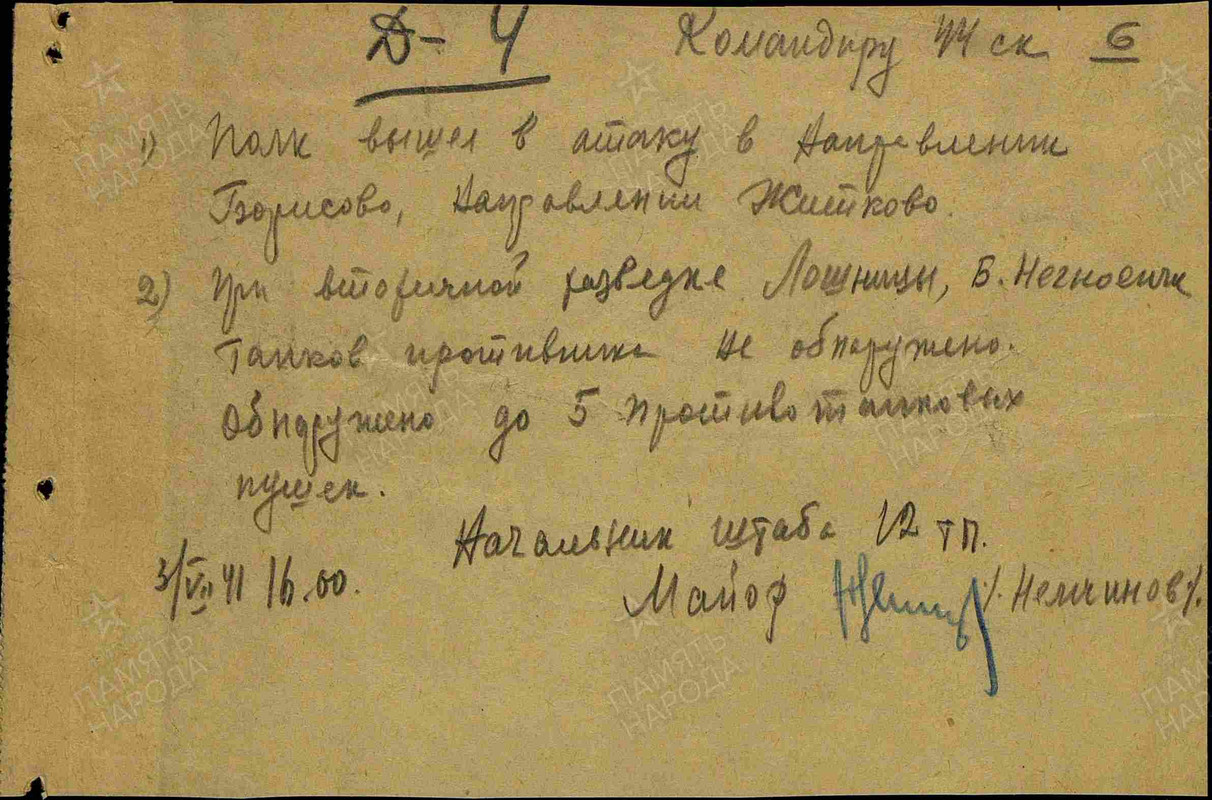 Д-4 Командиру 44 ск 6
1) Полк вышел в атаку в направлении
Борисово, направлении Житково.
2) При вторичной разведке Лошницы, Б. Негновичи
танков противника не обнаружено.
Обнаружено до 5 противотанковых
пушек.
Начальник штаба 12 тп.
3/VII 41 16.00.
Майор /. Немчинов /.
ПАМЯТЬ
НАРОДА